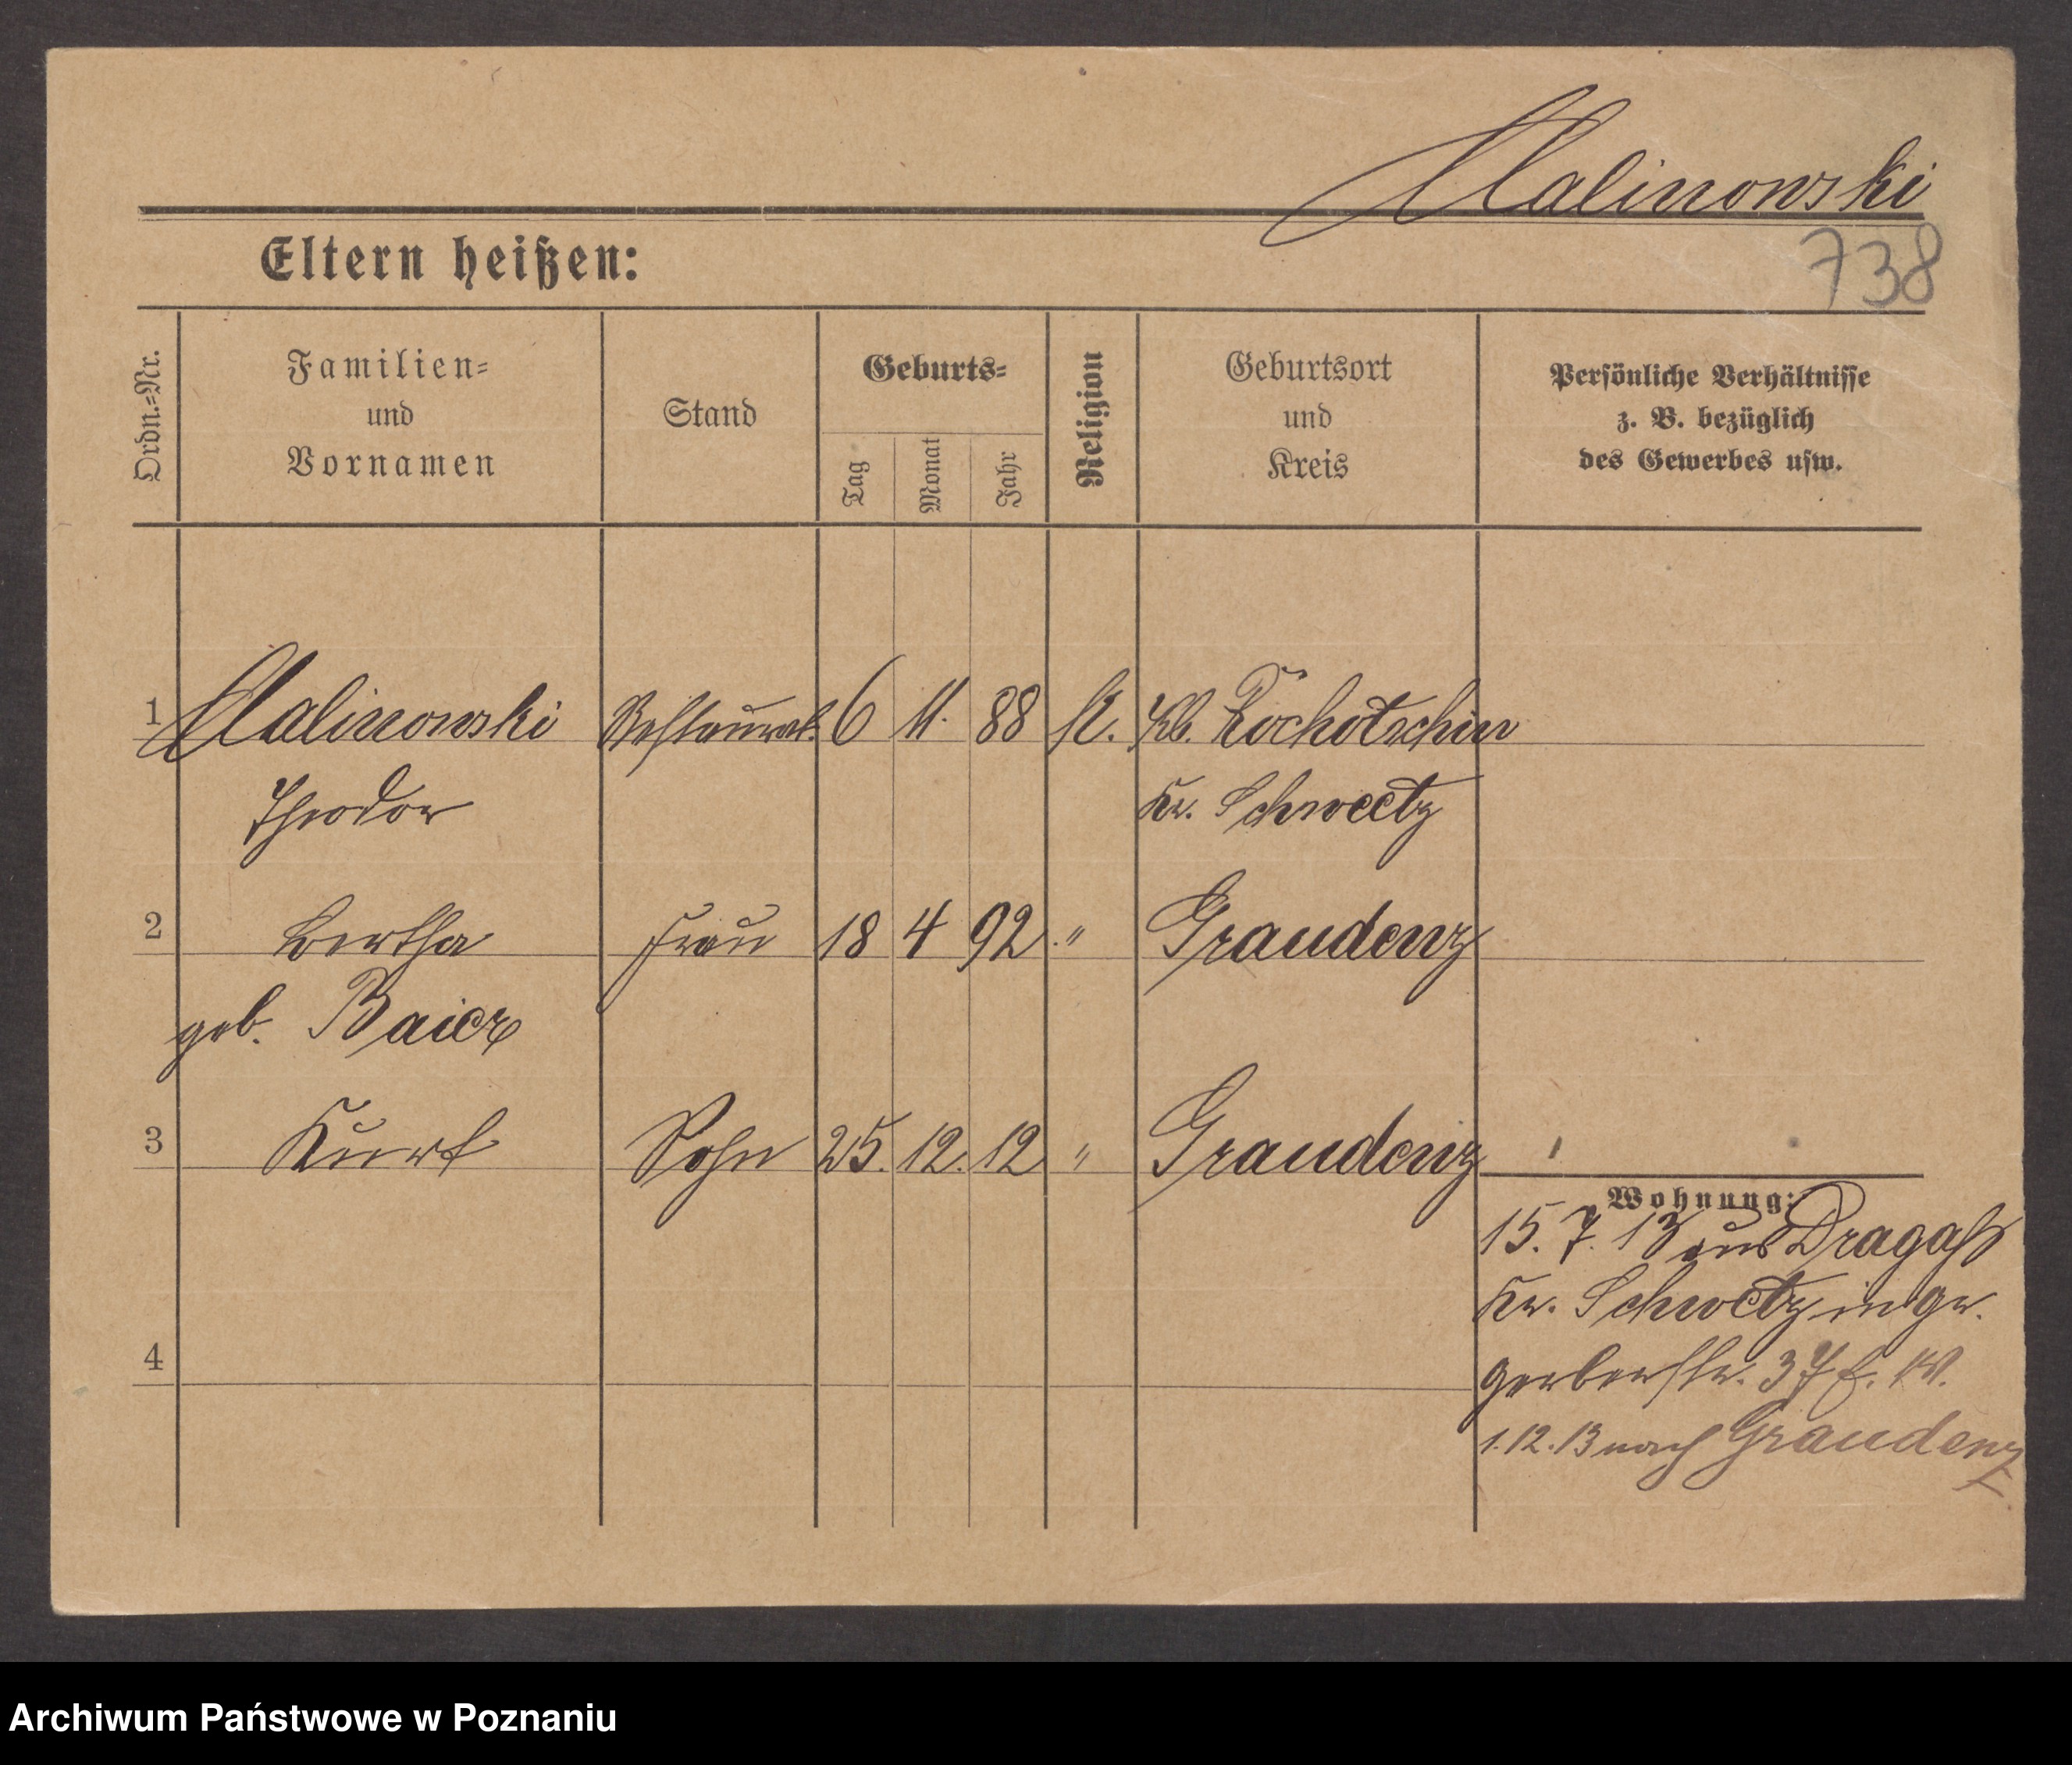 Malinowski
738
Eltern heißen:
Ordn.-Nr.
Familien-
und
Vornamen
Stand
Geburts-
Tag
Monat
Jahr
Religion
Geburtsort
und
Kreis
Persönliche Verhältnisse
z. B. bezüglich
des Gewerbes usw.
1 Malinowski Restaurat. 6 11. 88 K. Kl.
Theodor Kr. Schwetz
2 Bertha Frau 18 4 92 " Graudenz
geb. Baier
3 Kurt Sohn 25. 12. 12 " Graudenz
Wohnung:
15. 7. 13 aus Dragaß
Kr. Schwetz in Gr.
Gerberstr. 37
4
1.12.13 nach Graudenz
Archiwum Państwowe w Poznaniu